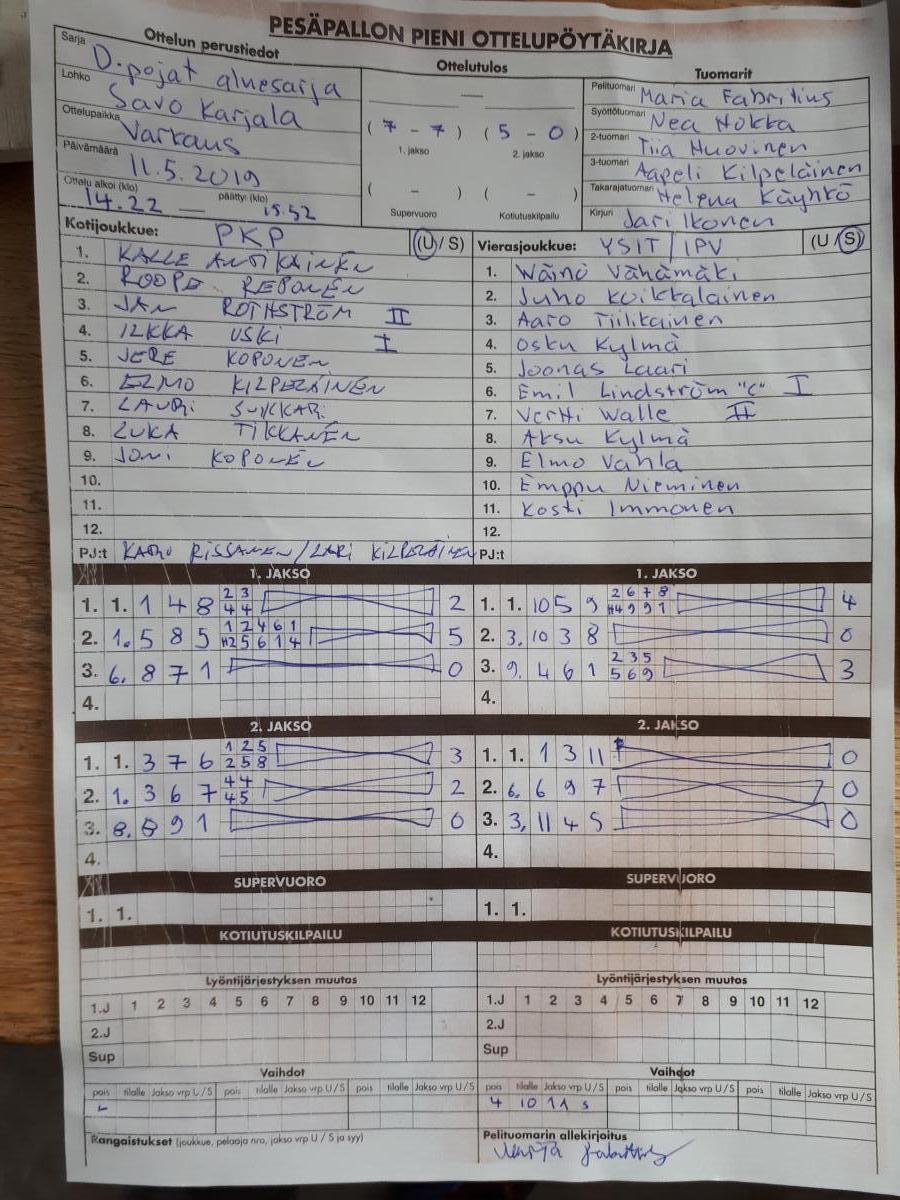 PESÄPALLON PIENI OTTELUPÖYTÄKIRJA
Ottelun perustiedot
Sarja D-pojat aluesarja
Lohko Savo Karjala
Ottelupaikka Varkaus
Päivämäärä 11.5.2019
Ottelu alkoi (klo) 14.22 — päättyi (klo) 15.52
Ottelutulos
—
( 7 - 7 ) ( 5 - 0 )
1. jakso 2. jakso
( - ) ( - )
Supervuoro Kotiutuskilpailu
Tuomarit
Pelituomari Maria Fabritius
Syöttötuomari Nea Hokka
2-tuomari Tiia Huovinen
3-tuomari Aapeli Kilpeläinen
Takarajatuomari Helena Käyhkö
Kirjuri Jari Ikonen
Kotijoukkue: PKP (U / S)
1. KALLE ANTIKAINEN
2. ROOPE REPONEN
3. JAN ROTHSTRÖM II
4. ILKKA USKI I
5. JERE KOPONEN
6. ELMO KILPELÄINEN
7. LAURI SUKKARI
8. LUKA TIKKANEN
9. JONI KOPONEN
10.
11.
12.
PJ:t RISSANEN / LARI KILPELÄINEN
Vierasjoukkue: YSIT / IPV (U / S)
1. Wäinö Vähämäki
2. Juho Koikkalainen
3. Aaro Tiilikainen
4. Osku Kylmä
5. Joonas Laari
6. Emil Lindström "C" I
7. Vertti Walle II
8. Aksu Kylmä
9. Elmo Vahla
10. Emppu Nieminen
11. Kosti Immonen
12.
PJ:t
1. JAKSO
1. 1. 1 4 8 2 3 2
4 4
2. 1. 5 8 5 1 2 4 6 1 5
H2 5 6 1 4
3. 6. 8 7 1 0
4.
1. JAKSO
1. 1. 10 5 9 2 6 7 8 4
H4 9 9 1
2. 3. 10 3 8 0
3. 9. 4 6 1 2 3 5 3
5 6 9
4.
2. JAKSO
1. 1. 3 7 6 1 2 5 3
2 5 8
2. 1. 3 6 7 4 4 2
4 5
3. 8. 8 9 1 0
4.
2. JAKSO
1. 1. 1 3 11 0
2. 6. 6 9 7 0
3. 3, 11 4 5 0
4.
SUPERVUORO
1. 1.
SUPERVUORO
1. 1.
KOTIUTUSKILPAILU
KOTIUTUSKILPAILU
Lyöntijärjestyksen muutos
1.J 1 2 3 4 5 6 7 8 9 10 11 12
2.J
Sup
Lyöntijärjestyksen muutos
1.J 1 2 3 4 5 6 7 8 9 10 11 12
2.J
Sup
Vaihdot
pois tilalle Jakso vrp U / S pois tilalle Jakso vrp U / S pois tilalle Jakso vrp U / S
Vaihdot
pois tilalle Jakso vrp U / S pois tilalle Jakso vrp U / S pois tilalle Jakso vrp U / S
4 10 1 1 s
Rangaistukset (joukkue, pelaaja nro, jakso vrp U / S ja syy)
Pelituomarin allekirjoitus
Maria Fabritius